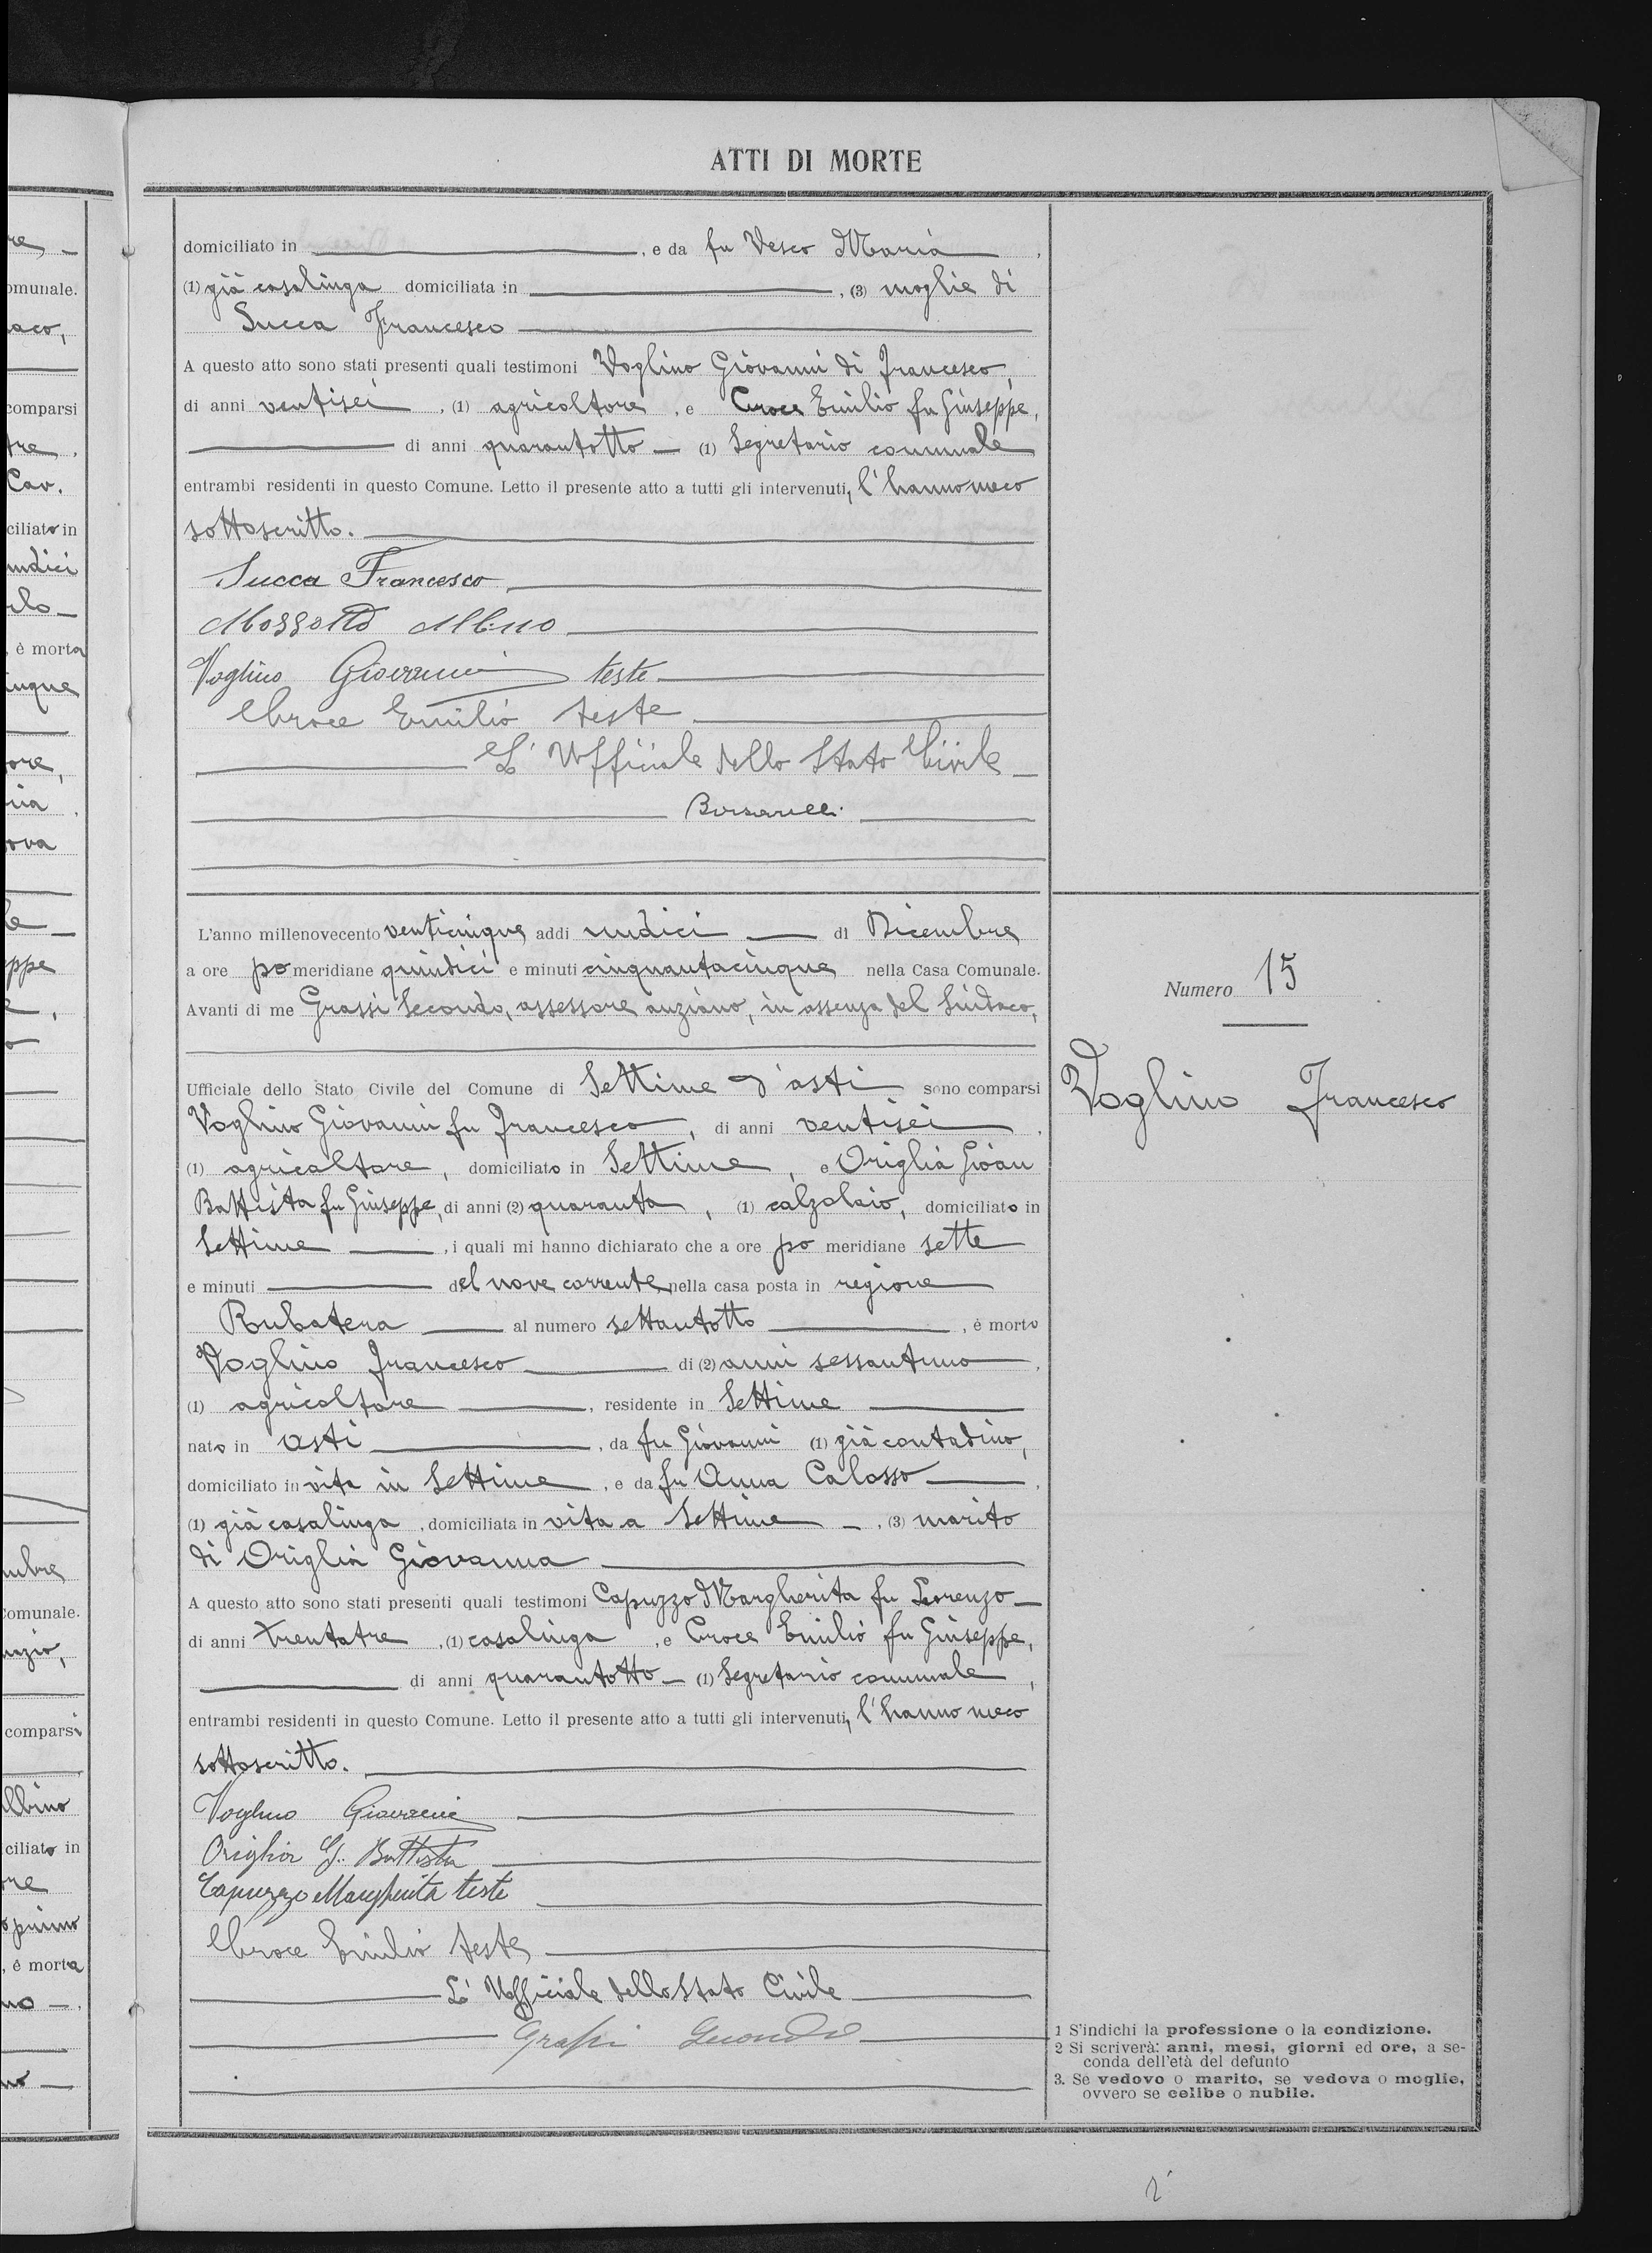 ATTI DI MORTE
domiciliato in , e da fu Vesco Maria ,
(1) già casalinga domiciliata in , (3) moglie di
Succa Francesco
A questo atto sono stati presenti quali testimoni Voglino Giovanni di Francesco,
di anni ventisei , (1) agricoltore , e Croce Emilio fu Giuseppe,
di anni quarantotto (1) Segretario comunale
entrambi residenti in questo Comune. Letto il presente atto a tutti gli intervenuti, l'hanno meco
sottoscritto.
Succa Francesco
Mossotto Albino
Voglino Giovanni teste
Croce Emilio teste
L'Ufficiale dello Stato Civile
L'anno millenovecento venticinque addi undici di Dicembre
a ore po meridiane quindici e minuti cinquantacinque nella Casa Comunale.
Avanti di me Grassi Secondo, assessore anziano, in assenza del Sindaco,
Ufficiale dello Stato Civile del Comune di Settime d'asti sono comparsi
Voglino Giovanni fu Francesco , di anni ventisei ,
(1) agricoltore , domiciliato in Settime , e Origlia Gioan
Battista fu Giuseppe, di anni (2) quaranta , (1) calzolaio, domiciliato in
Settime , i quali mi hanno dichiarato che a ore po meridiane sette
e minuti del nove corrente nella casa posta in regione
Rubatera al numero settantotto , è morto
Voglino Francesco di (2) anni sessantuno ,
(1) agricoltore , residente in Settime
nato in Asti , da fu Giovanni (1) già contadino,
domiciliato in vita in Settime , e da fu Anna Calosso ,
(1) già casalinga , domiciliata in vita a Settime , (3) marito
di Origlia Giovanna
A questo atto sono stati presenti quali testimoni Capuzzo Margherita fu Lorenzo
di anni trentatre , (1) casalinga , e Croce Emilio fu Giuseppe,
di anni quarantotto (1) Segretario comunale ,
entrambi residenti in questo Comune. Letto il presente atto a tutti gli intervenuti, l'hanno meco
sottoscritto.
Voglino Giovanni
Origlia G. Battista
Capuzzo Margherita teste
Croce Emilio teste
L'Ufficiale dello Stato Civile
Grassi Secondo
Numero 15
Voglino Francesco
1 S'indichi la professione o la condizione.
2 Si scriverà: anni, mesi, giorni ed ore, a se-
conda dell'età del defunto
3. Se vedovo o marito, se vedova o moglie,
ovvero se celibe o nubile.